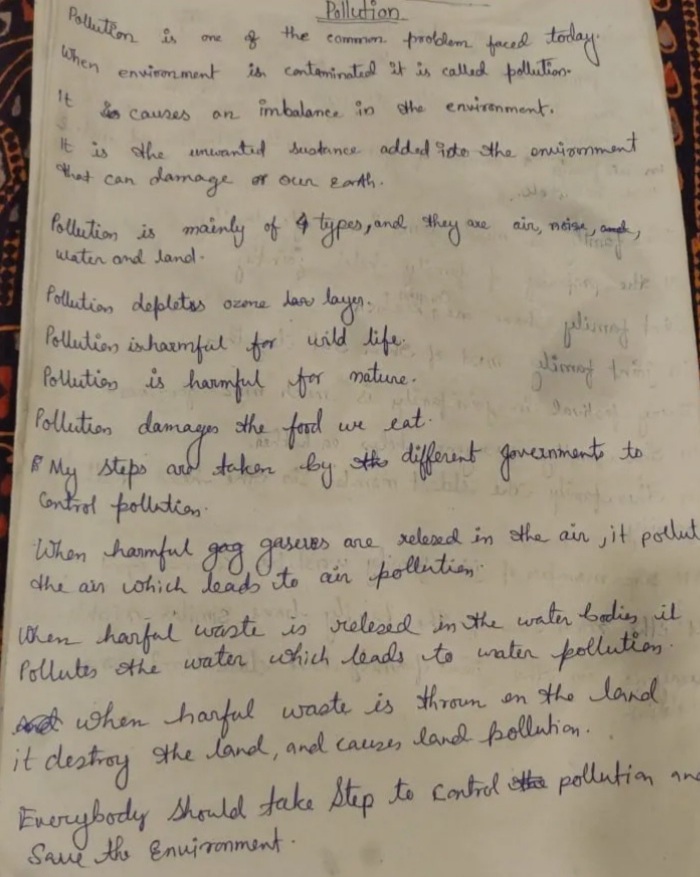 Pollution
Pollution is one of the common problem faced today.
When environment is contaminated it is called pollution.
It causes an imbalance in the environment.
It is the unwanted sustance added into the environment
that can damage or our Earth.
Pollution is mainly of 4 types, and they are air, noise,
water and land.
Pollution depletes ozone layer.
Pollution is harmful for wild life.
Pollution is harmful for nature.
Pollution damages the food we eat.
My Steps are taken by different governments to
Control pollution.
When harmful gaseves are relesed in the air, it pollut
the air which leads to air pollution.
When harful waste is relesed in the water bodies it
Pollutes the water which leads to water pollution.
when harful waste is throun on the land
it destroy the land, and causes land pollution.
Everybody should take Step to control pollution and
Save the Environment.